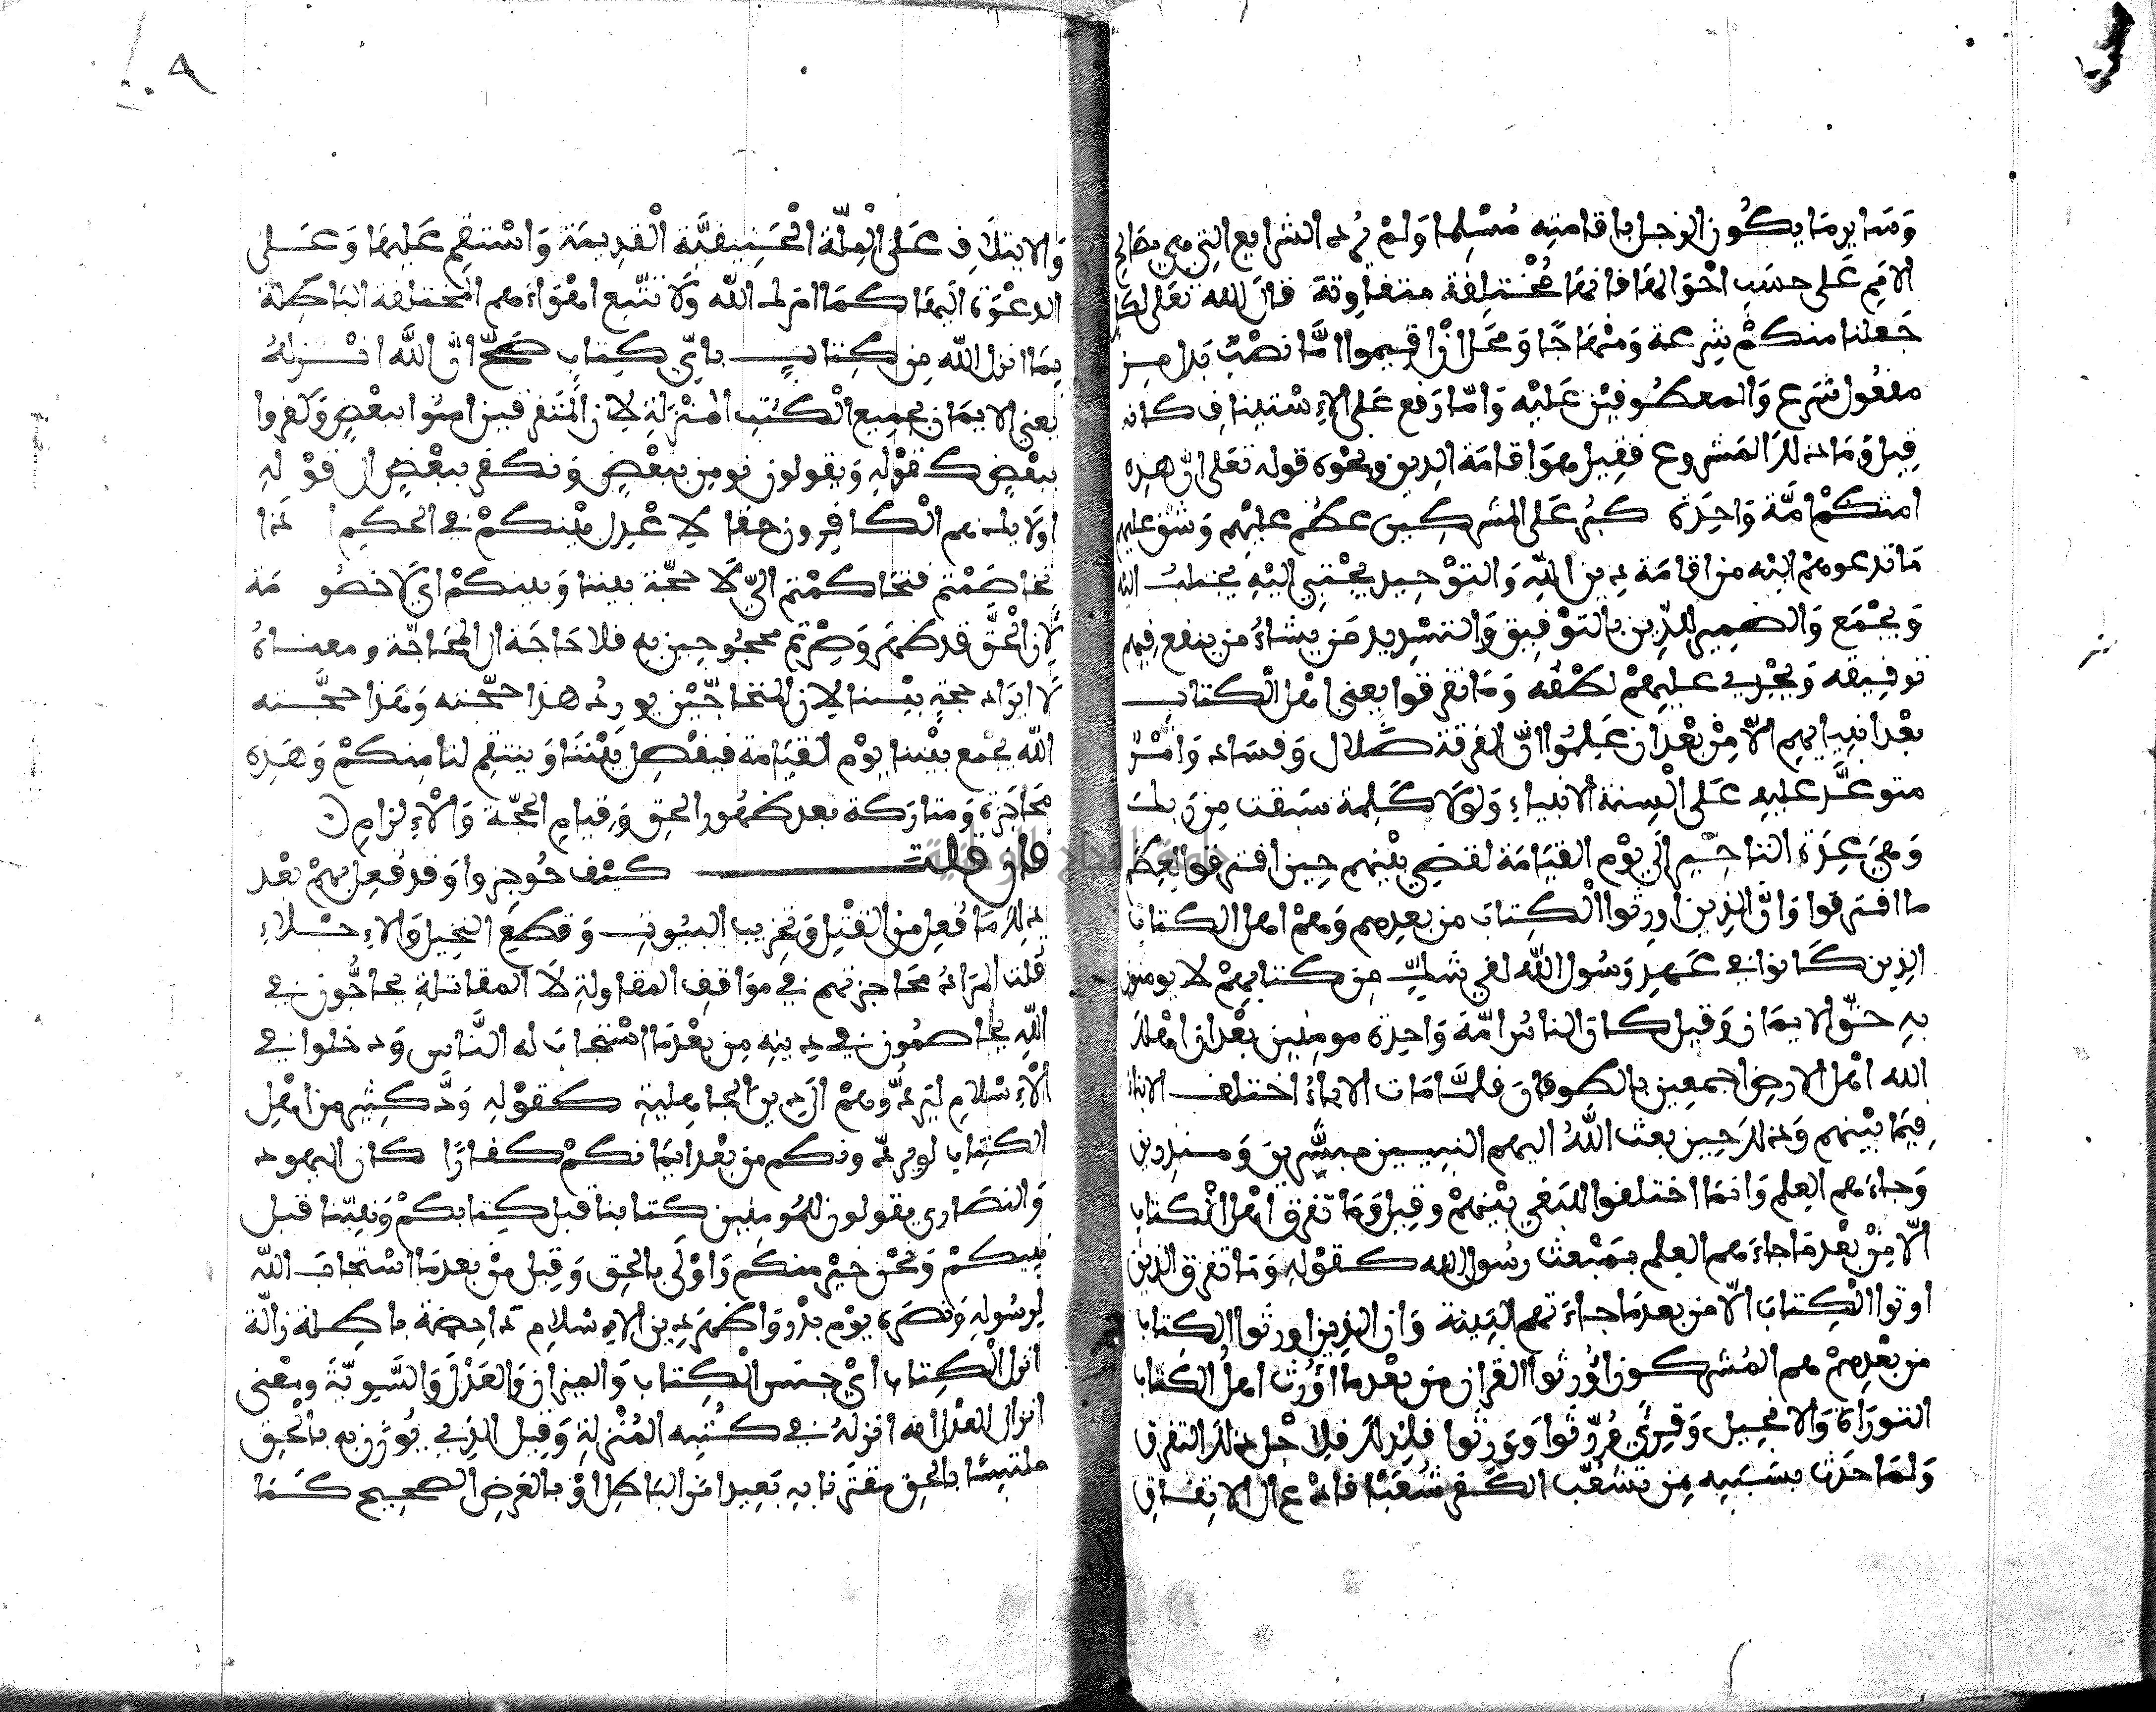 وَسَاير مَا يكُون الرجل باقامته مُسْلِما وَلَمْ يُرد الشرايع التي هي مصَالح
الامَمِ عَلى حسَبِ احْوَالهَا فانهَا مُخْتَلِفة متفاوِتة قال الله تعَلى لكل
جَعَلنا منكمْ شِرعة وَمنْهَاجًا وَمحَل انْ اقيموا امَّا نصْبٌ بَدل مِن
مفعُول شَرع وَالمعطُوفيْن عَليْه وَامّا رَفع عَلى الاِسْتيناف كانه
قِيل وَمَا ذلك المَشروع فقِيل هوَ اقامَة الدِين ونحْوه قوله تعَلى انّ هذِه
امتكمْ امَّة وَاحِدَة كبُر عَلى المشركِين عظُم عليْهم وَشق عليهم
مَا تدعوهمْ اليْه من اقامَة دِين اللهِ وَالتوْحِيد يَجْتبي اليْهِ يجتلبُ اليه
وَيجْمَع وَالضمِير للدِّين بالتوْفِيق وَالتسْدِيد مَن يشاءُ من ينفع فيهم
توفِيقه وَيجْري عليهمْ لطْفه وَمَا تفرقوا يعني اهْل الكتاب
بعْد انبيايهم الاّ مِنْ بعْد ان عَلِمُوا انّ الفرقة ضَلال وَفسَاد وَامْرٌ
متوعَّد عليهِ عَلى الْسِنة الانبياءِ وَلوْلا كَلِمة سَبَقت مِن رَبك
وَهيَ عِدَة التاخِيرِ الى يَوْم القيَامَة لقضِي بيْنهم حِين افترقوا لِعِظم
ما افترقوا وَانّ الذِين اورِثوا الْكِتابَ من بعدِهم وَهمْ اهل الكتاب
الذِين كَانوا في عَهدِ رَسُول الله لفي شكٍّ مِن كتابهِمْ لا يومنون
بهِ حَقّ الايمَان وَقيل كان الناسُ امّة وَاحِدة مومِنين بعْد ان اهْلك
الله اهْل الارضِ اجمعِين بالطوفان فلمَّا مَات الاباءُ اختلف الابناء
فِيمَا بيْنهم وَذلك حِين بعث اللَّهُ اليهم النبِيين مبشِّرينَ وَمنذِرين
وَجاءَهم العِلم وَانمَا اختلفوا للبَغي بيْنهمْ وقِيل وَمَا تفرق اهْل الْكتاب
الاّ مِنْ بعْد مَا جاءَهم العِلم بمَبْعث رسُول الله كقوْلهِ وَمَا تفرق الذِين
اوتوا الْكِتابَ الاّ من بعد مَا جاءَتهم البَينة وَان الذِين اورثوا الكِتاب
من بعْدِهمْ هم المُشركون اوُرِثوا القران من بعْد ما اوُرث اهلُ الكِتاب
التورَاة وَالانجِيل وَقرئ وُرِّثوا وَوَرِثوا فلِذلك فلاجْل ذلك التفرق
وَلمَا حدَث بسَبَبِه مِن تشعُّب الكفر شُعَبًا فادْع الى الاِتفاق
وَالايتلافِ عَلى الْمِلّة الْحَنِيفيَّة الْقدِيمَة وَاسْتقِم عَليهَا وَعَلى
الدعْوَة اليهَا كمَا امرك الله وَلا تتَّبع اهْوَاءهم المختلفة البَاطِلة
بِمَا انزل الله مِن كِتابٍ باِيّ كِتابٍ صَحّ انّ اللَّه انزلهُ
يعني الايمَان بجمِيع الْكُتبِ المنْزلةِ لاِن الْمُتَفرقين امنُوا ببعْضٍ وَكَفروا
ببعْضٍ كقوْلهِ وَيقولون نومِن ببعْضٍ وَنكفر ببعْضٍ الى قوْلهِ
اولايك هم الْكافِرون حقا لاِعْدِل بيْنكمْ في الحكم اذا
تخاصَمْتم فتحَاكمْتم اليّ لاَ حجّة بيننا وَبينكمْ اي لا خصُومَة
لاِن الْحَقّ قد ظهَر وَصِرْتم محجُوجِين بهِ فلا حَاجَة الى المحَاجّة ومعناهُ
لاَ ايرَاد حجةٍ بيْننا لاِن المتحاجّيْن يورِدُ هذا حجّته وَهذا حجَّته
الله يجمَع بيْننا يوْم القيَامَة فيفْصِل بَيْنَنَا وَينتقِم لنا مِنكمْ وَهَذِه
محَاجَزة وَمتاركة بعد ظهُور الحق وَقيَامِ الحجّة وَالاِلزامِ
فان قلت كيْف حُوجِزوا وَقد فُعِل بهمْ بعْد
ذلك مَا فُعِل من القتْلِ وَتخرِيب البيُوتِ وَقطع النخِيل وَالاِجْلاءِ
قلت المرَادُ محَاجزتهم في موَاقفِ المقاولةِ لاَ المقاتلةِ يحاجُّون في
اللّهِ يخاصمُون في دِينِه مِن بعْد مَا اسْتجابَ له النَّاس وَدخلوا في
الاِسْلامِ ليَردُّوهمْ الى دِين الجاهلِيةِ كقوْلهِ وَدَّ كثِير من اهْلِ
الكِتاب لو يردّونكم من بعْد ايمَانكمْ كفارًا كان اليهود
وَالنصَارى يقولون للمُومنِين كتابنا قبل كِتابكمْ وَنبيّنا قبل
نبيكمْ وَنحْن خيْر منكم وَاوْلى بالحق وَقِيل منْ بعد مَا اسْتجابَ اللّه
لِرسُولهِ وَنصَره يوْم بدْر وَاظهَر دِين الاِسْلامِ دَاحِضة باطِلة زالّة
انزل الكِتاب ايْ جنس الْكِتاب وَالمِيزان وَالعَدْل وَالسَّوِيّةَ ومعْنى
انزال العدْل انه انزلهُ في كُتبِه المُنْزلةِ وَقِيل الذِي يُوزن بهِ بالْحِق
ملتبِسًا بالحِق مقترنا بهِ بَعِيدا من البَاطِل اوْ بالغرضِ الصحِيح كَمَا